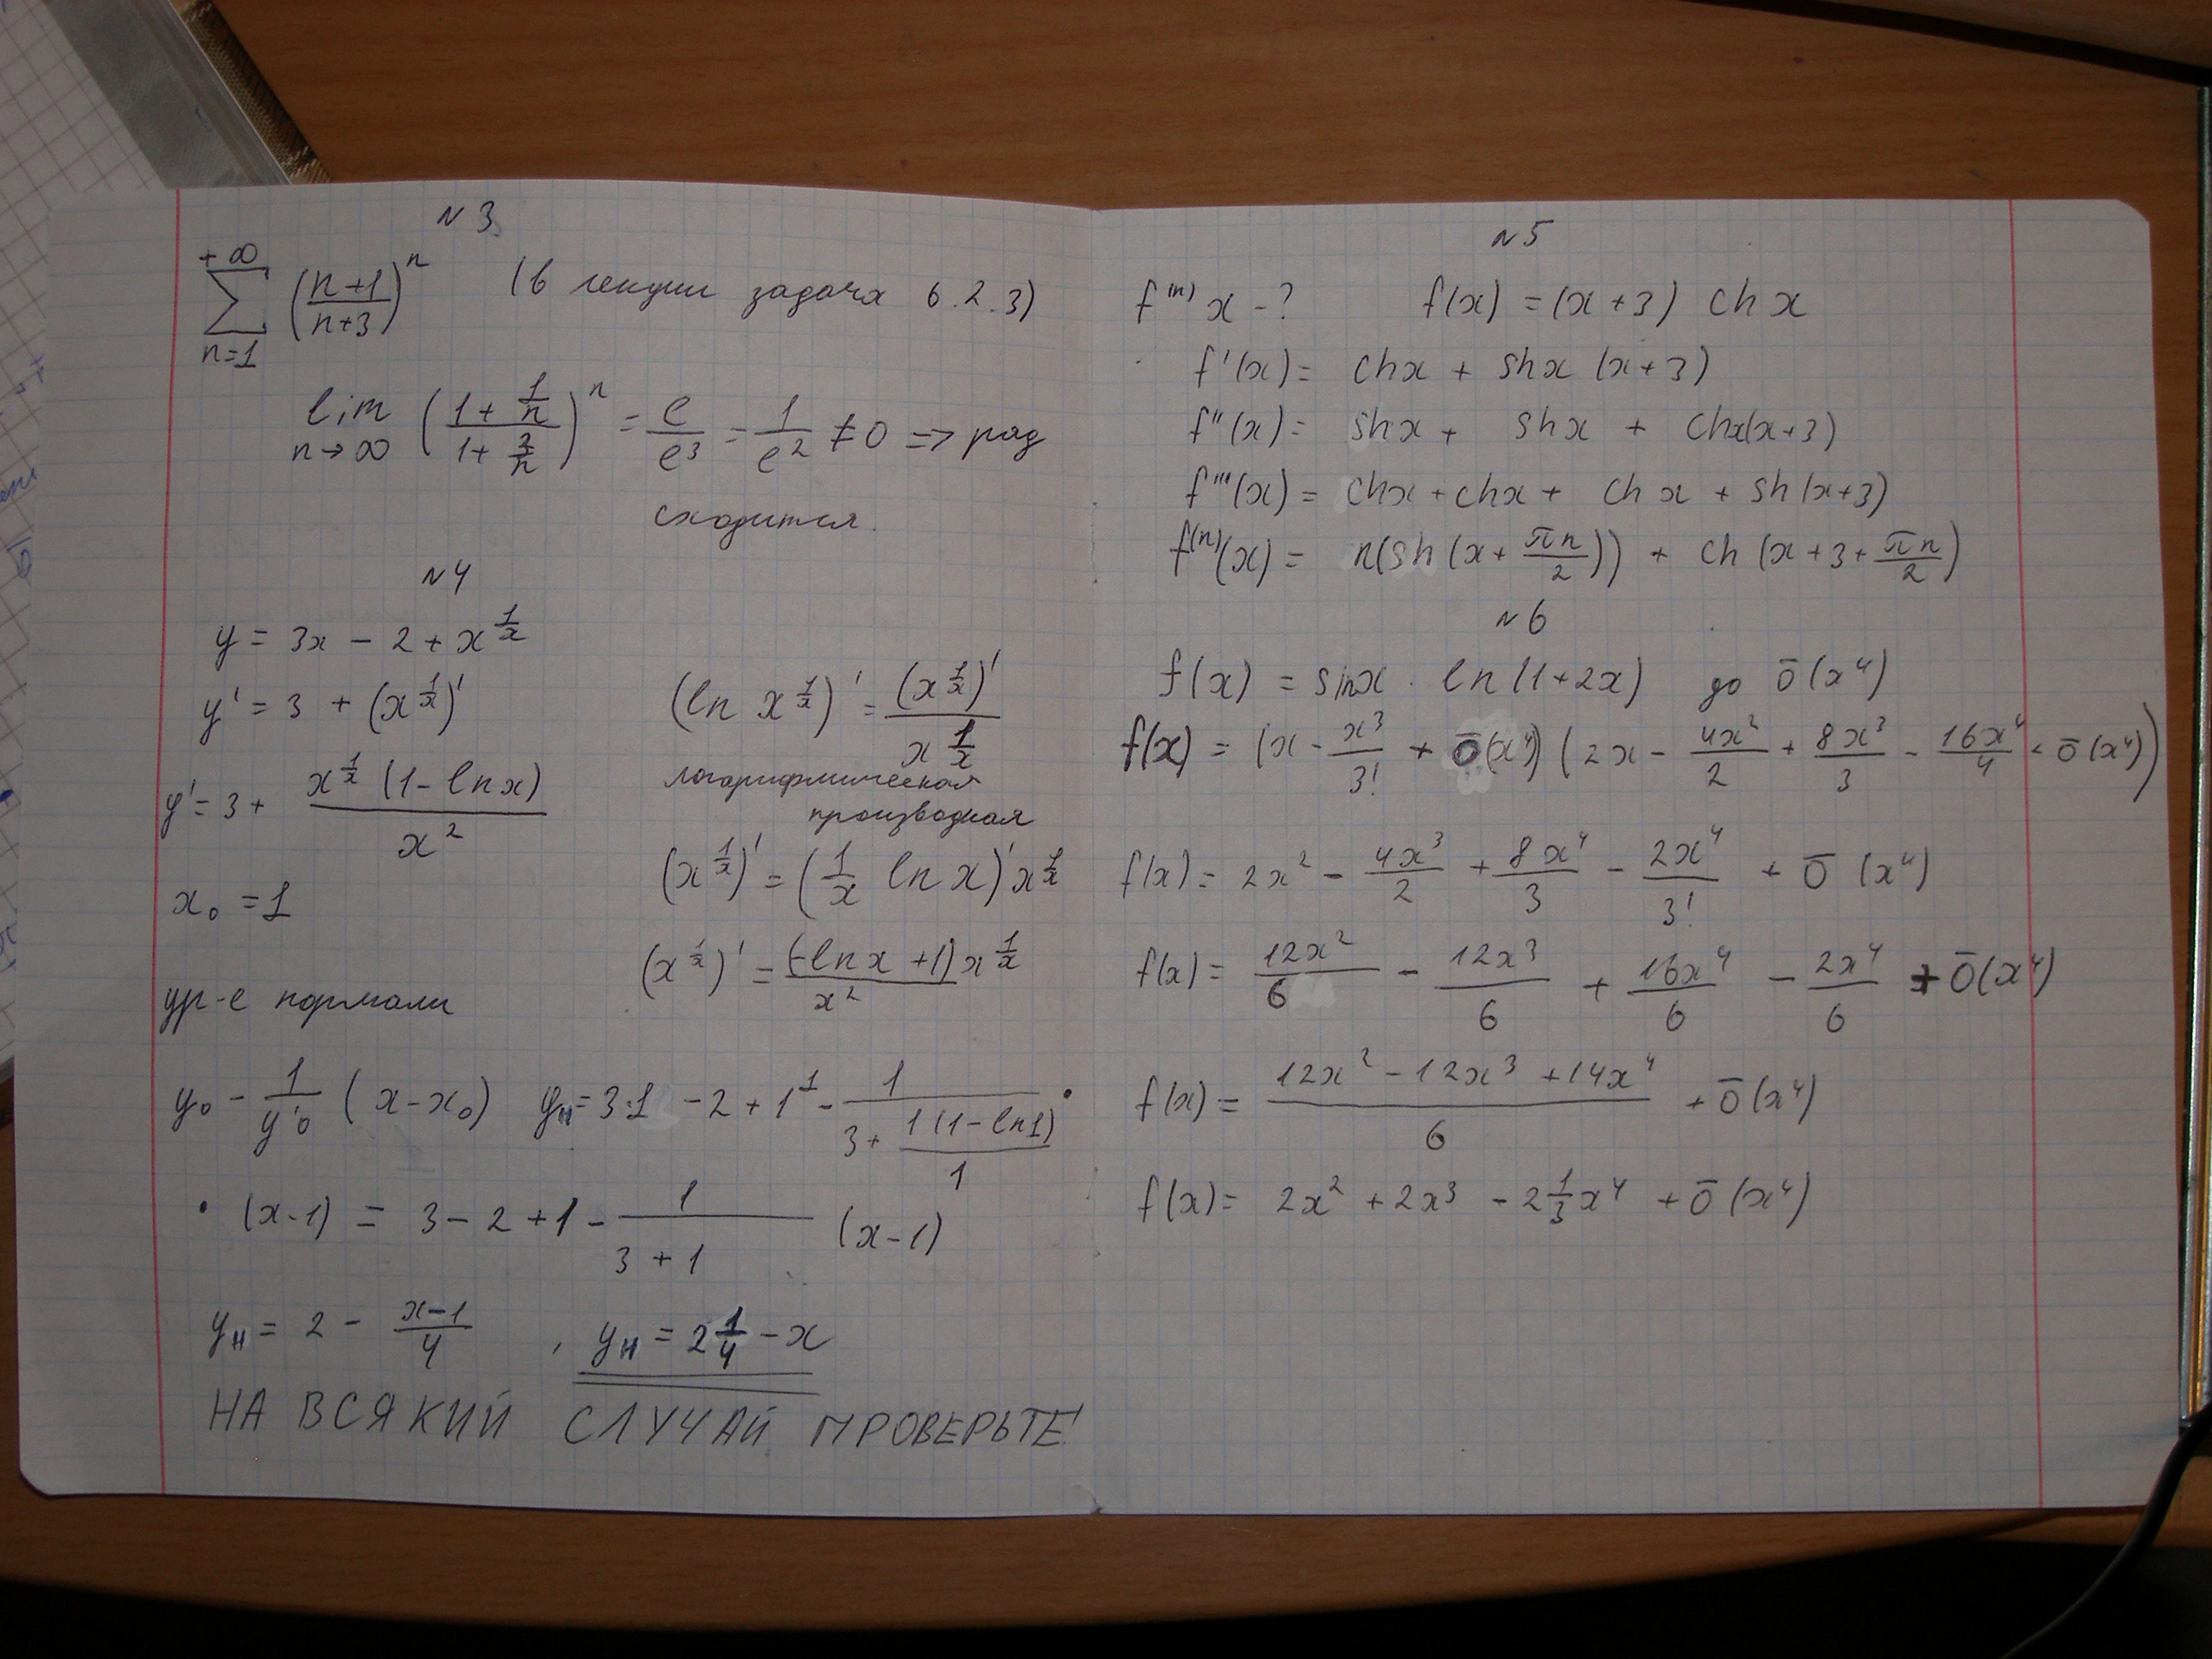 N 3
+∞ ∑ n=1 ((n+1)/(n+3))^n (в лекции задача 6.2.3)
lim n→∞ ((1+1/n)/(1+3/n))^n = e/e^3 = 1/e^2 ≠ 0 => ряд
сходится.
N 4
y = 3x - 2 + x^(1/x)
y' = 3 + (x^(1/x))' (ln x^(1/x))' = (x^(1/x))'/x^(1/x)
логарифмическая
производная
y' = 3 + x^(1/x) (1 - ln x)/x^2
(x^(1/x))' = (1/x ln x)' x^(1/x)
x₀ = 1
(x^(1/x))' = (-ln x + 1) x^(1/x)/x^2
ур-е нормали
y₀ - 1/y'₀ (x - x₀) yн = 3·1 - 2 + 1^1 - 1/(3 + 1(1 - ln1)/1) ·
· (x-1) = 3 - 2 + 1 - 1/(3+1) (x-1)
yн = 2 - (x-1)/4 , yн = 2 1/4 - x
НА ВСЯКИЙ СЛУЧАЙ ПРОВЕРЬТЕ!
N 5
f^(n) x - ? f(x) = (x+3) ch x
f'(x) = chx + shx (x+3)
f''(x) = shx + shx + chx(x+3)
f'''(x) = chx + chx + chx + sh(x+3)
f^(n)(x) = n(sh(x + πn/2)) + ch(x + 3 + πn/2)
N 6
f(x) = sinx · ln(1+2x) до ō(x^4)
f(x) = (x - x^3/3! + ō(x^4)) (2x - 4x^2/2 + 8x^3/3 - 16x^4/4 + ō(x^4))
f(x) = 2x^2 - 4x^3/2 + 8x^4/3 - 2x^4/3! + ō(x^4)
f(x) = 12x^2/6 - 12x^3/6 + 16x^4/6 - 2x^4/6 + ō(x^4)
f(x) = (12x^2 - 12x^3 + 14x^4)/6 + ō(x^4)
f(x) = 2x^2 + 2x^3 - 2 1/3 x^4 + ō(x^4)